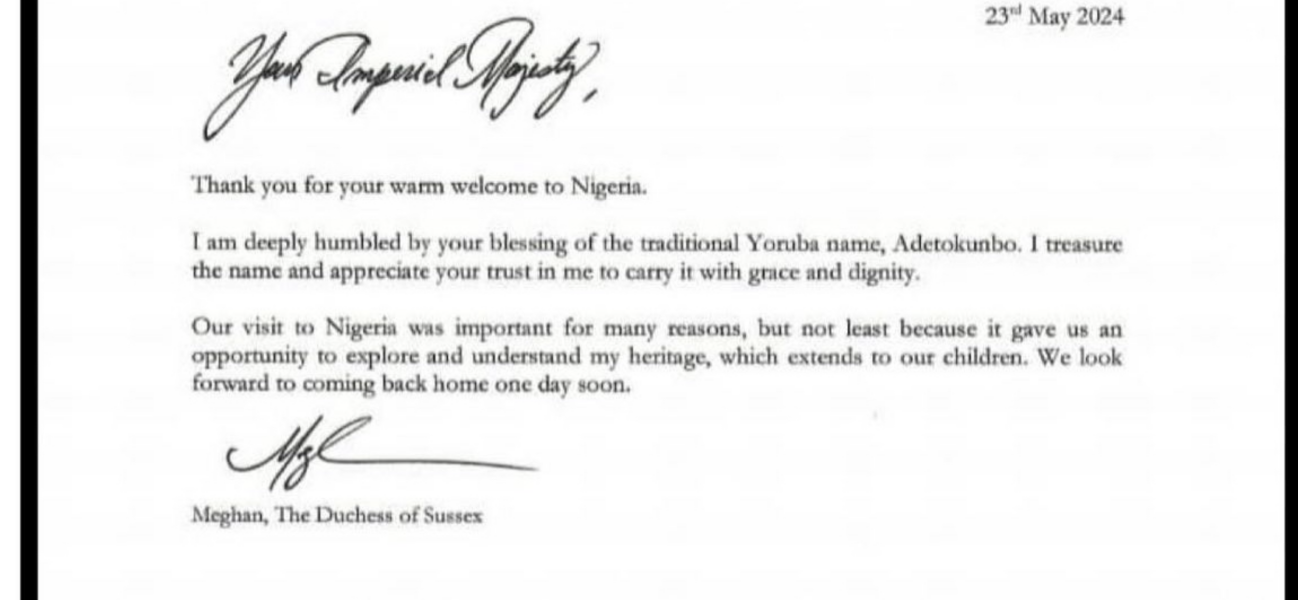 23rd May 2024
Your Imperial Majesty,
Thank you for your warm welcome to Nigeria.
I am deeply humbled by your blessing of the traditional Yoruba name, Adetokunbo. I treasure
the name and appreciate your trust in me to carry it with grace and dignity.
Our visit to Nigeria was important for many reasons, but not least because it gave us an
opportunity to explore and understand my heritage, which extends to our children. We look
forward to coming back home one day soon.
Meghan, The Duchess of Sussex